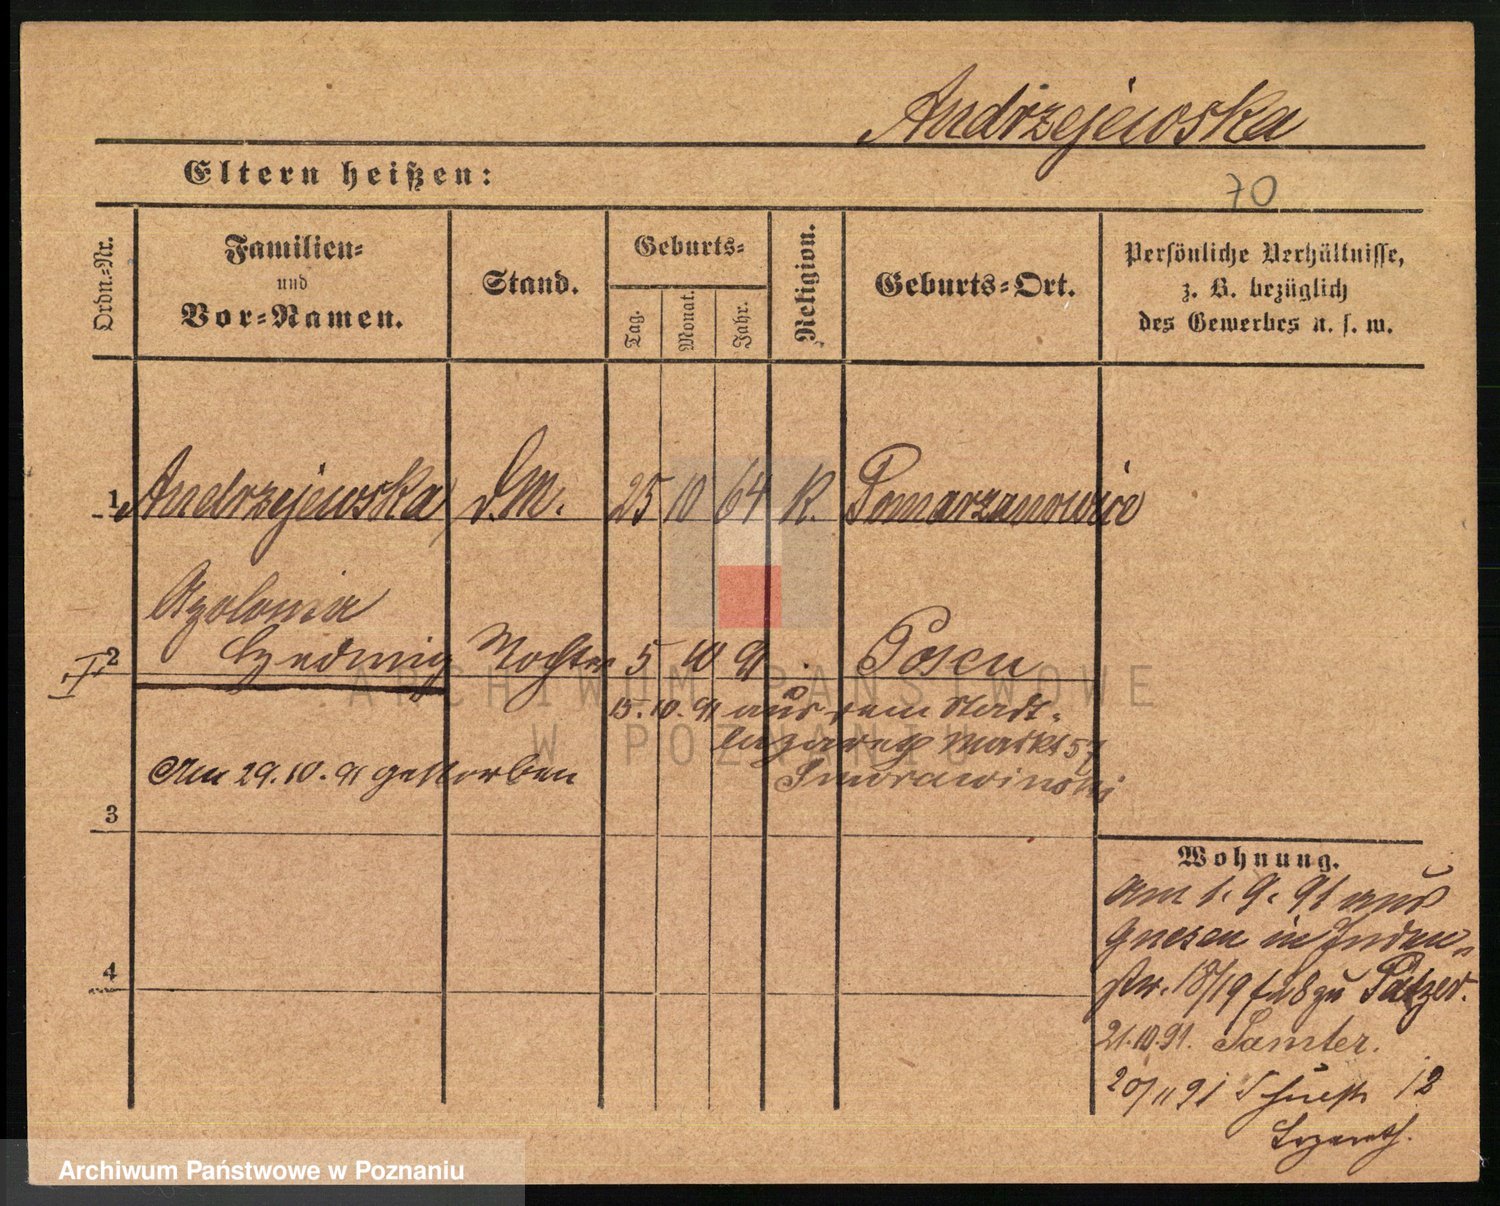 Andrzejewska
Eltern heißen:
70
Ordn.=Nr.
Familien=
und
Vor=Namen.
Stand.
Geburts=
Tag.
Monat.
Jahr.
Religion.
Geburts=Ort.
Persönliche Verhältnisse,
z. B. bezüglich
des Gewerbes u. s. w.
1 Andrzejewska D.M. 25 10 64 K. Pomarzanowice
Apolonia
2 Hedwig Tochter 5 10 91 Posen
15.10.91 aus dem Stadt-
lazareth Markt 57
Smorawinski
Am 29.10.91 gestorben
3
Wohnung.
Am 1.9.91 aus
Gnesen in Juden-
str. 18/19 zu Patzer.
4
21.10.91. Samter.
20/11 91 12
Lazareth.
ARCHIWUM PAŃSTWOWE
W POZNANIU
Archiwum Państwowe w Poznaniu